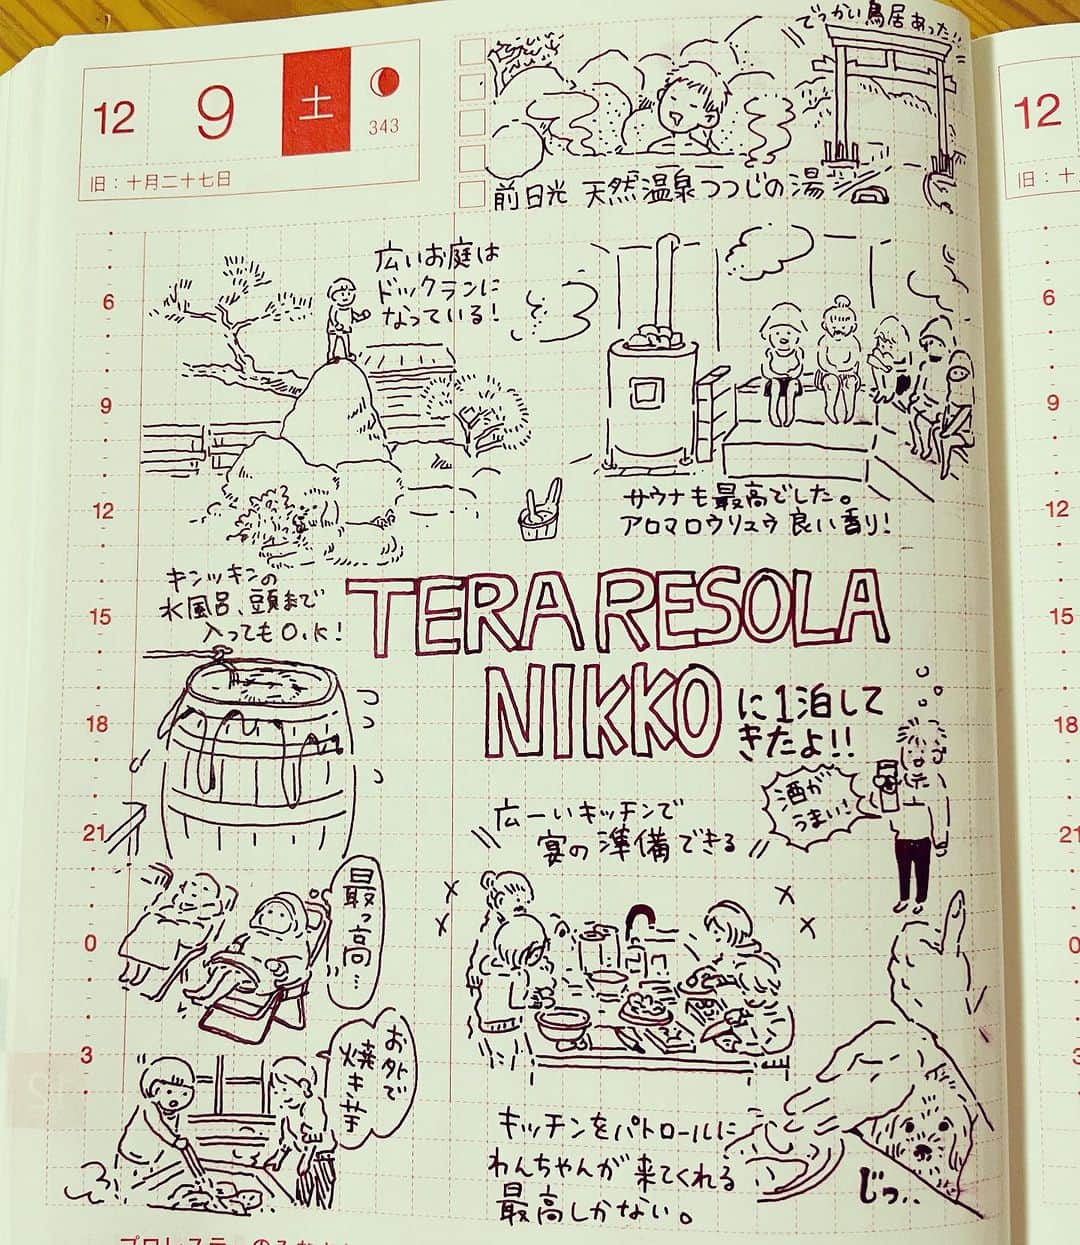 12
9
土
343
旧：十月二十七日
でっかい鳥居あった!!
前日光 天然温泉つつじの湯
12
旧：十
広いお庭は
ドックランに
なっている！
サウナも最高でした。
アロマロウリュウ良い香り！
キンッキンの
水風呂、頭まで
入ってもO.K！
TERA RESOLA
NIKKO
に1泊して
きたよ!!
酒が
うまい！
広ーいキッチンで
宴の準備できる
最っ高…
お外で
焼き芋
キッチンをパトロールに
わんちゃんが来てくれる
最高しかない。
じっ..
6
9
12
15
18
21
0
3
6
9
12
15
18